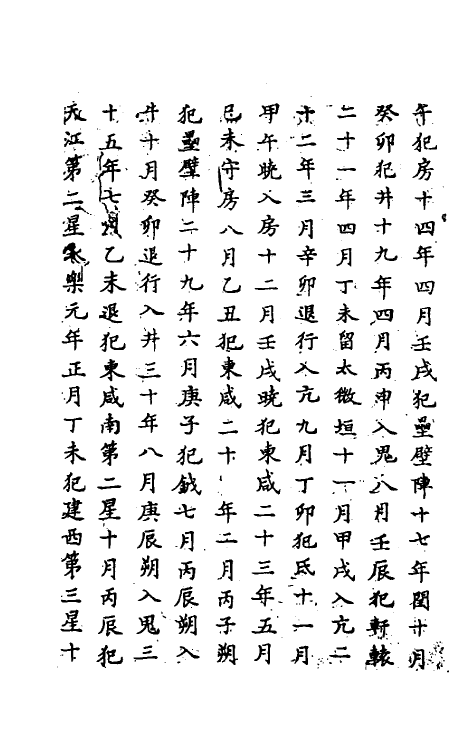 午犯房十四年四月壬戌犯壘壁陣十七年閏十月
癸卯犯井十九年四月丙申入鬼八月壬辰犯軒轅
二十一年四月丁未留太微垣十一月甲戌入亢二
十二年三月辛卯退行入亢九月丁卯犯氐十一月
甲午晩入房十二月壬戌晩犯東咸二十三年五月
己未守房八月乙丑犯東咸二十 年二月丙子朔
犯壘壁陣二十九年六月庚子犯鉞七月丙辰朔入
井十月癸卯退行入井三十年八月庚辰朔入鬼三
十五年七月乙未退犯東咸南第二星十月丙辰犯
天江第二星永樂元年正月丁未犯建西第三星十